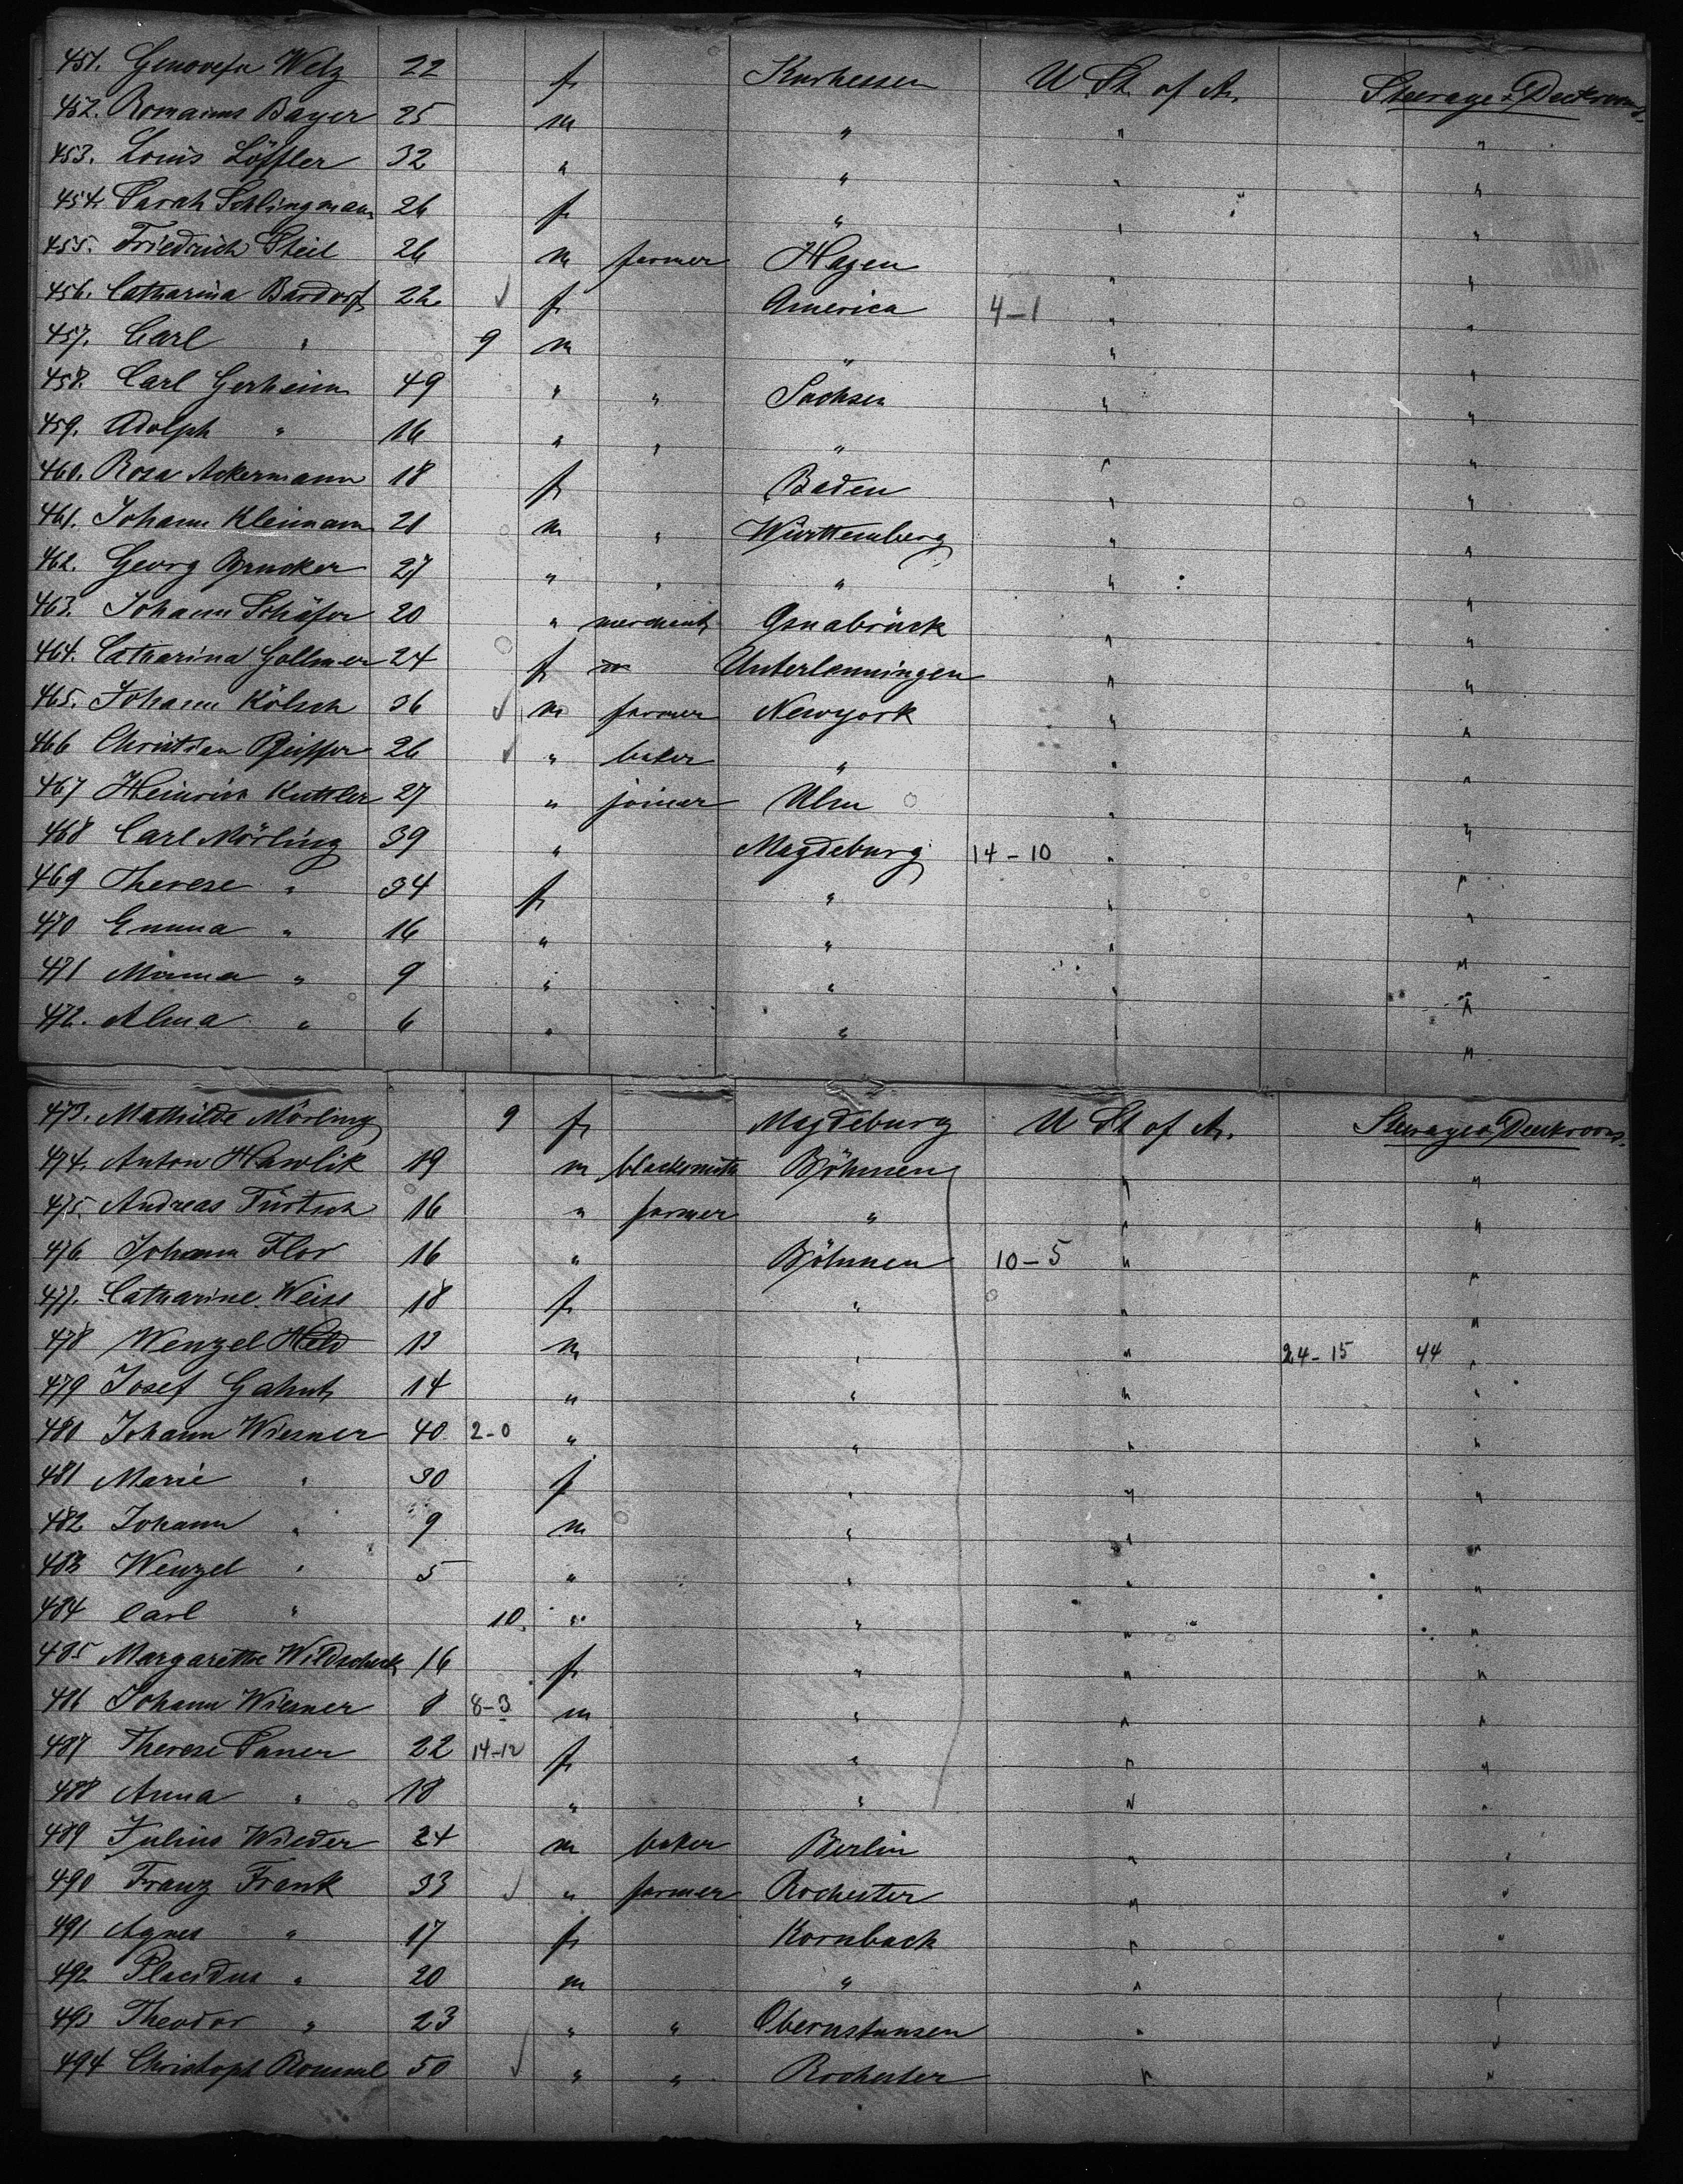 451. Genovefa Welz 22 f Kurhessen U St. of A. Steerage & Deckrooms.
452. Romanus Bayer 25 m " " "
453. Louis Löffler 32 " " " "
454. Sarah Schlingmann 26 f " " "
455. Friedrich Theil 26 m farmer Hagen " "
456. Catharina Bardorf 22 f America 4-1 " "
457. Carl " 9 m " " "
458. Carl Gerheim 49 " " Sachsen " "
459. Adolph " 16 " " " " "
460. Rosa Ackermann 18 f Baden " "
461. Johann Kleimann 21 m " Württemberg " "
462. Georg Brucker 27 " " " " "
463. Johann Schäfer 20 " merchant Osnabrück " "
464. Catharina Gollmer 24 f Unterlenningen " "
465. Johann Kölsch 36 m farmer Newyork " "
466 Christian Pfeiffer 26 " baker " " "
467 Heinrich Kuttler 27 " joiner Ulm " "
468 Carl Mörling 39 " Magdeburg 14-10 " "
469 Therese " 34 f " " "
470 Emma " 16 " " " "
471 Minna " 9 " " " "
472. Alma " 6 " " " "
473. Mathilde Mörling 9 f Magdeburg U St of A. Steerage & Deckrooms.
474. Anton Hawlik 19 m blacksmith Böhmen " "
475. Andreas Türtsch 16 " farmer " " "
476 Johann Flor 16 " Böhmen 10-5 " "
477. Catharine Weise 18 f " " "
478 Wenzel Held 13 m " " 24-15 44 "
479 Josef Gahut 14 " " " "
480 Johann Wiesner 40 2-0 " " " "
481 Marie " 30 f " " "
482 Johann " 9 m " " "
483 Wenzel " 5 " " " "
484 Carl " 10. " " " "
485 Margarethe Wildscheck 16 f " " "
486 Johann Wiesner 8 8-3 m " " "
487 Therese Saner 22 14-12 f " " "
488 Anna " 18 " " " "
489 Julius Wieder 24 m baker Berlin " "
490 Franz Frank 33 " farmer Rochester " "
491 Agnes " 17 f Kornback " "
492 Placidus " 20 m " " "
493 Theodor " 23 " " Obernstunsen " "
494 Christoph Rommel 50 " " Rochester " "